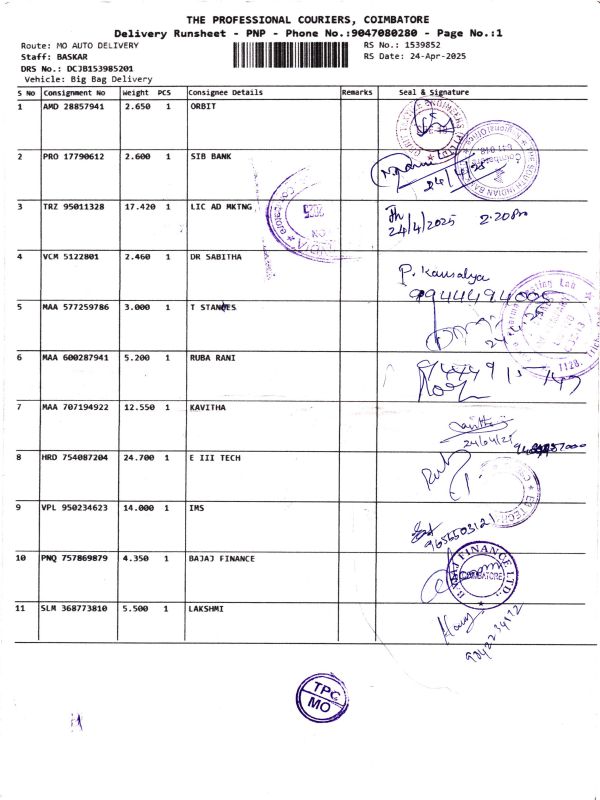 THE PROFESSIONAL COURIERS, COIMBATORE
Delivery Runsheet - PNP - Phone No.:9047080280 - Page No.:1
Route: MO AUTO DELIVERY RS No.: 1539852
Staff: BASKAR RS Date: 24-Apr-2025
DRS No.: DCJB153985201
Vehicle: Big Bag Delivery
S No Consignment No Weight PCS Consignee Details Remarks Seal & Signature
1 AMD 28857941 2.650 1 ORBIT
2 PRO 17790612 2.600 1 SIB BANK
24/4/25
3 TRZ 95011328 17.420 1 LIC AD MKTNG
24/4/2025 2.20 Pm
4 VCM 5122801 2.460 1 DR SABITHA
P. Kausalya
5 MAA 577259786 3.000 1 T STANES
6 MAA 600287941 5.200 1 RUBA RANI
7 MAA 707194922 12.550 1 KAVITHA
24/04/25
8 HRD 754087204 24.700 1 E III TECH
9 VPL 950234623 14.000 1 IMS
9656503121
10 PNQ 757869879 4.350 1 BAJAJ FINANCE
BAJAJ FINANCE LTD.
COIMBATORE
11 SLM 368773810 5.500 1 LAKSHMI
TPC
MO